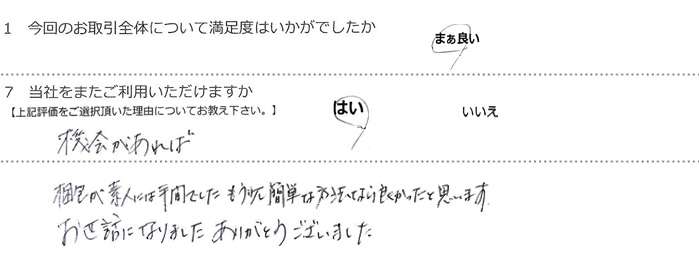 1 今回のお取引全体について満足度はいかがでしたか
まぁ良い
7 当社をまたご利用いただけますか
【上記評価をご選択頂いた理由についてお教え下さい。】 はい いいえ
機会があれば
梱包が素人には手間でした もう少し簡単な方法なら良かったと思います
お世話になりました ありがとうございました